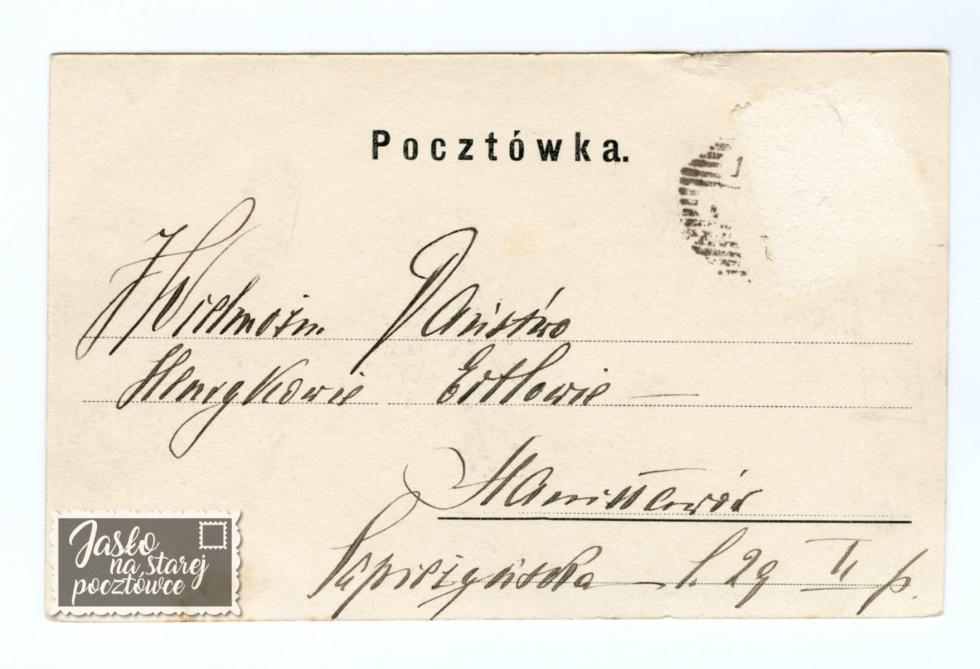 Pocztówka.
JWielmożn. Państwo
Henrykowie Ertlowie —
Stanisławów
Sapieżyńska — l. 29 II p.
Jasło
na starej
pocztówce